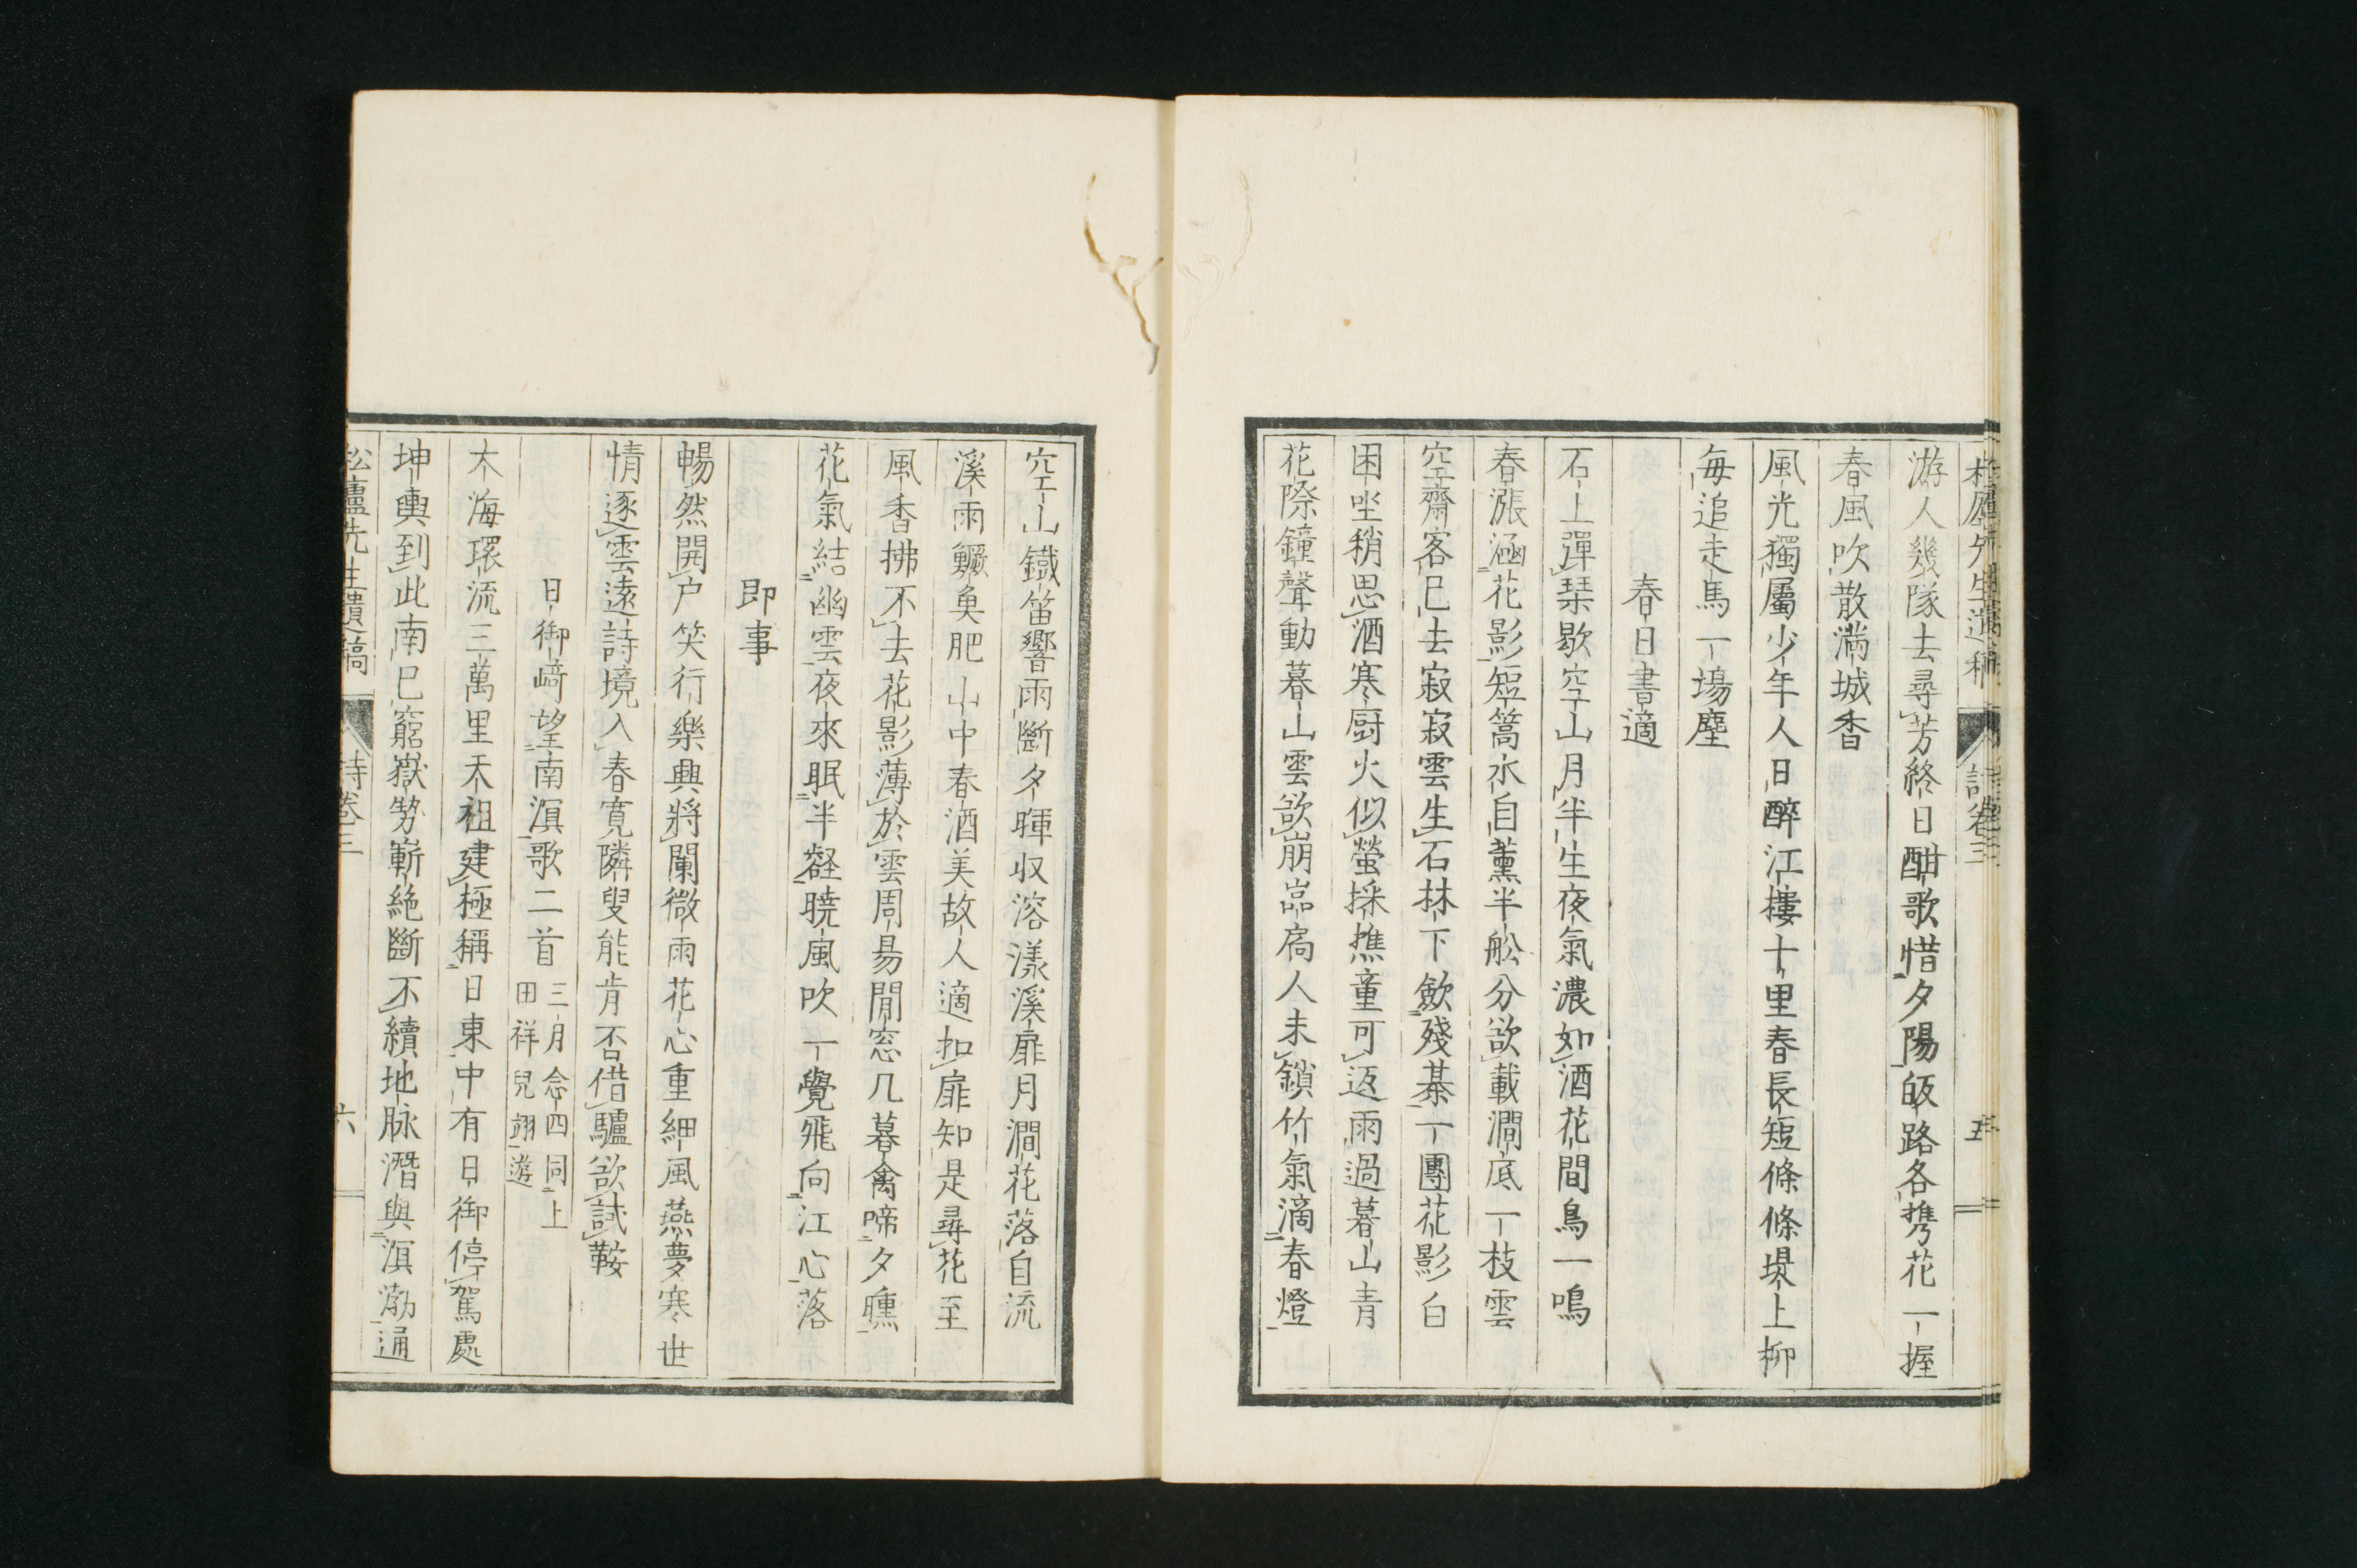 松廬先生遺稿 詩卷三 五
游人幾隊去尋芳終日酣歌惜夕陽皈路各携花一握
春風吹散滿城香
風光獨屬少年人日醉江樓十里春長短條條堤上柳
每追走馬一場塵
春日書適
石上彈琹歇空山月半生夜氣濃如酒花間鳥一鳴
春漲涵花影短篙水自薰半舩分欲載澗底一枝雲
空齋客已去寂寂雲生石林下斂殘棊一團花影白
困坐稍思酒寒厨火似螢採樵童可返雨過暮山青
花際鐘聲動暮山雲欲崩嵓扃人未鎖竹氣滴春燈
空山鐵笛響雨斷夕暉収溶漾溪扉月澗花落自流
溪雨鱖魚肥山中春酒美故人適扣扉知是尋花至
風香拂不去花影薄於雲周易閒窓几暮禽啼夕曛
花氣結幽雲夜來眠半壑曉風吹一覺飛向江心落
即事
暢然開户笑行樂興將闌微雨花心重細風燕夢寒世
情逐雲遠詩境入春寬隣叟能肯否借驢欲試鞍
日御﨑望南溟歌二首 三月念四同上
田祥兒翊遊
大海環流三萬里天祖建極稱日東中有日御停駕處
坤輿到此南已窮嶽勢嶄絶斷不續地脉潛與溟渤通
松廬先生遺稿 詩卷三 六